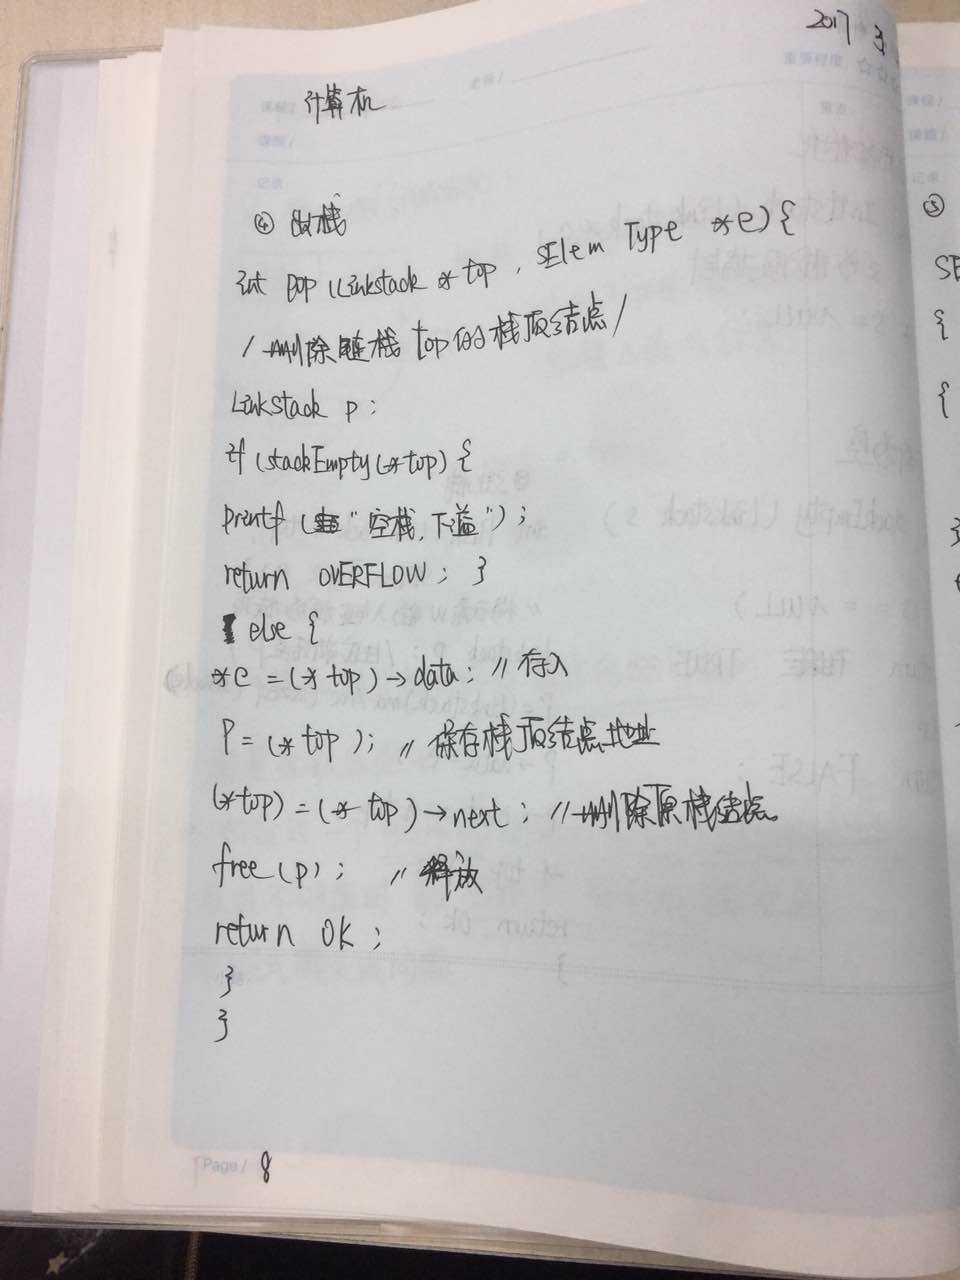 2017 3
计算机
④ 出栈
int pop (Linkstack *top , SElem Type *e) {
/删除链栈 top的栈顶结点/
LinkStack p ;
if (stackEmpty(*top) {
printf ( "空栈,下溢");
return OVERFLOW ; }
else {
*e = (* top) → data ; // 存入
P = (* top ) ; // 保存栈顶结点地址
(*top) = (* top) → next ; // 删除原栈结点
free (p) ; // 释放
return ok ;
}
}
Page / 8
⑤
SE
{
{